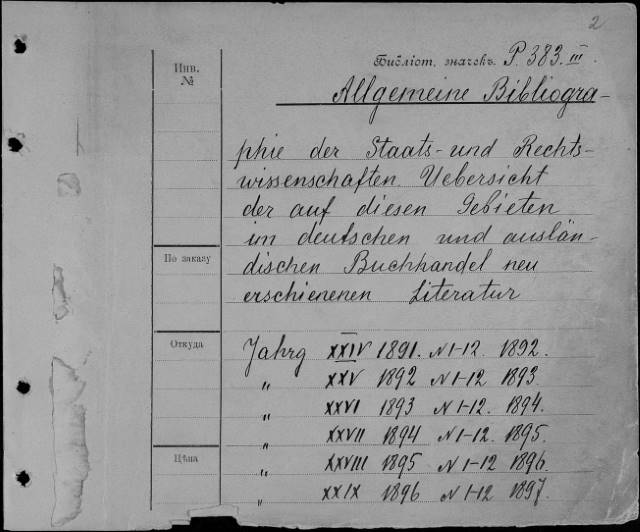 2
Инв.
№
Библіот. значекъ P. 383. III.
Allgemeine Bibliogra-
phie der Staats- und Rechts-
wissenschaften. Uebersicht
der auf diesen Gebieten
im deutschen und auslän-
По заказу
dischen Buchhandel neu
erschienenen Literatur
Откуда
Jahrg XXIV 1891. N 1-12. 1892.
„ XXV 1892 N 1-12 1893
„ XXVI 1893 N 1-12. 1894.
„ XXVII 1894 N 1-12. 1895.
Цѣна
„ XXVIII 1895 N 1-12 1896.
„ XXIX 1896 N 1-12 1897.